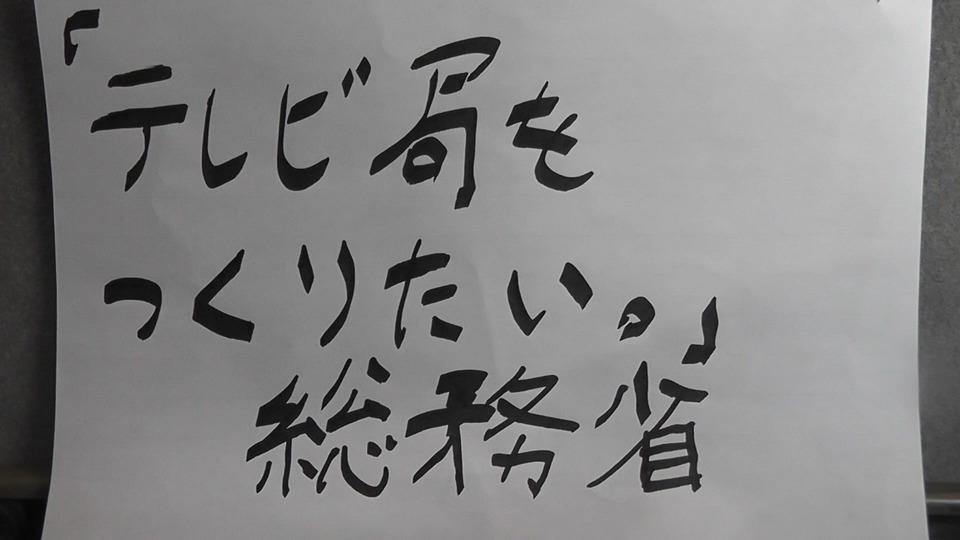 「テレビ局を
つくりたい。」
総務省